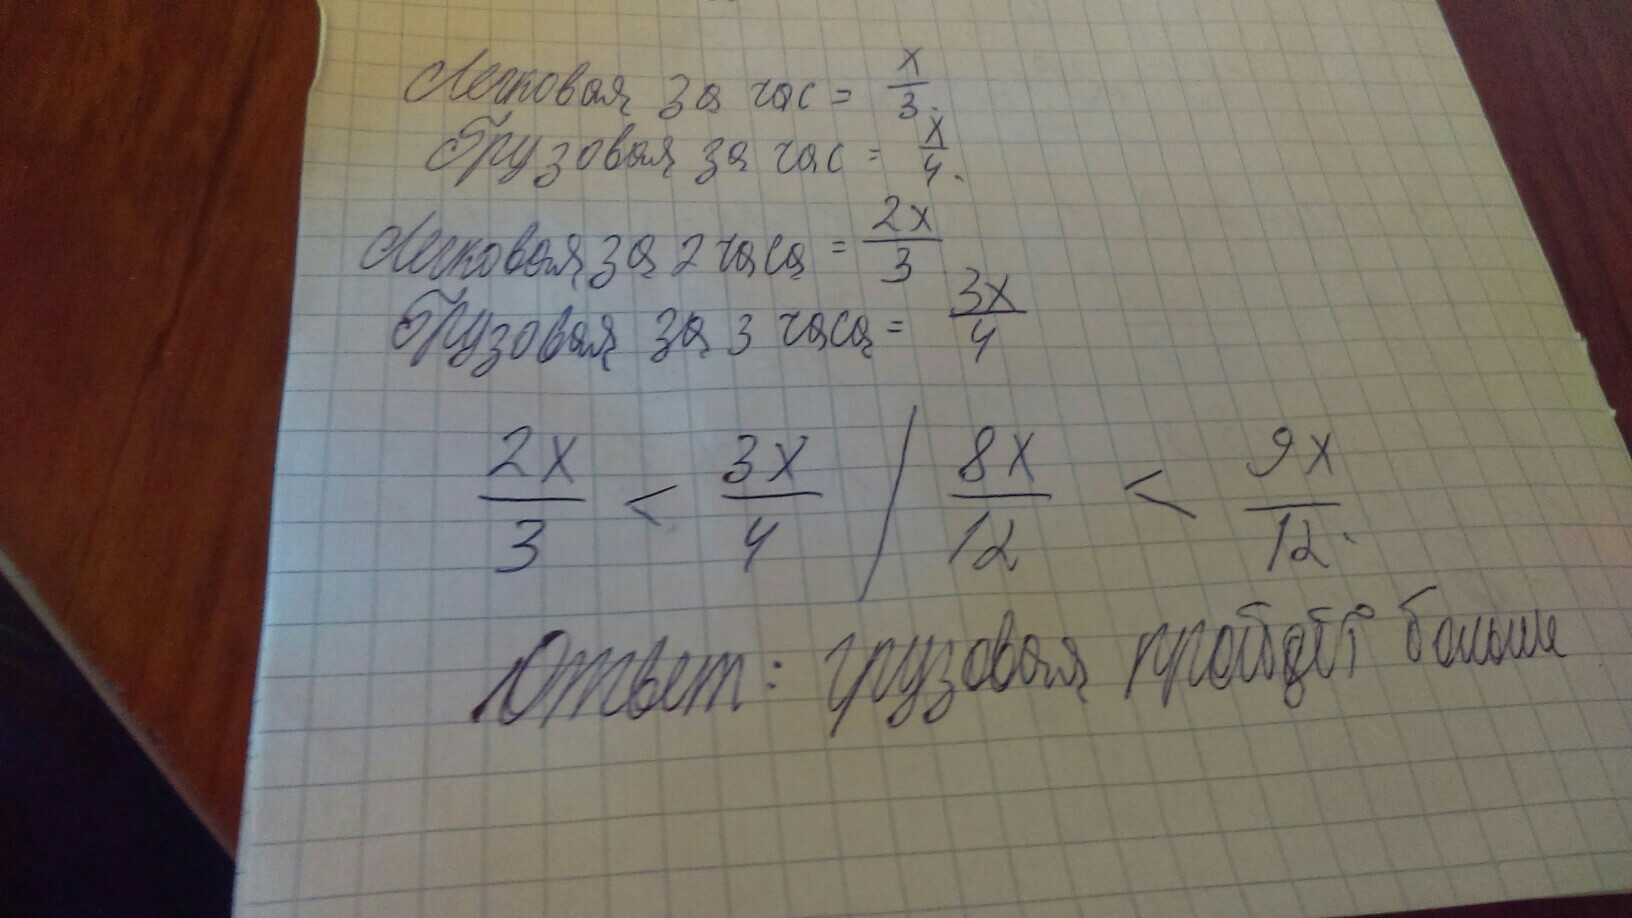 Легковая за час = x/3.
Грузовая за час = x/4.
Легковая за 2 часа = 2x/3
Грузовая за 3 часа = 3x/4
2x/3 < 3x/4 / 8x/12 < 9x/12.
Ответ: грузовая пройдёт больше